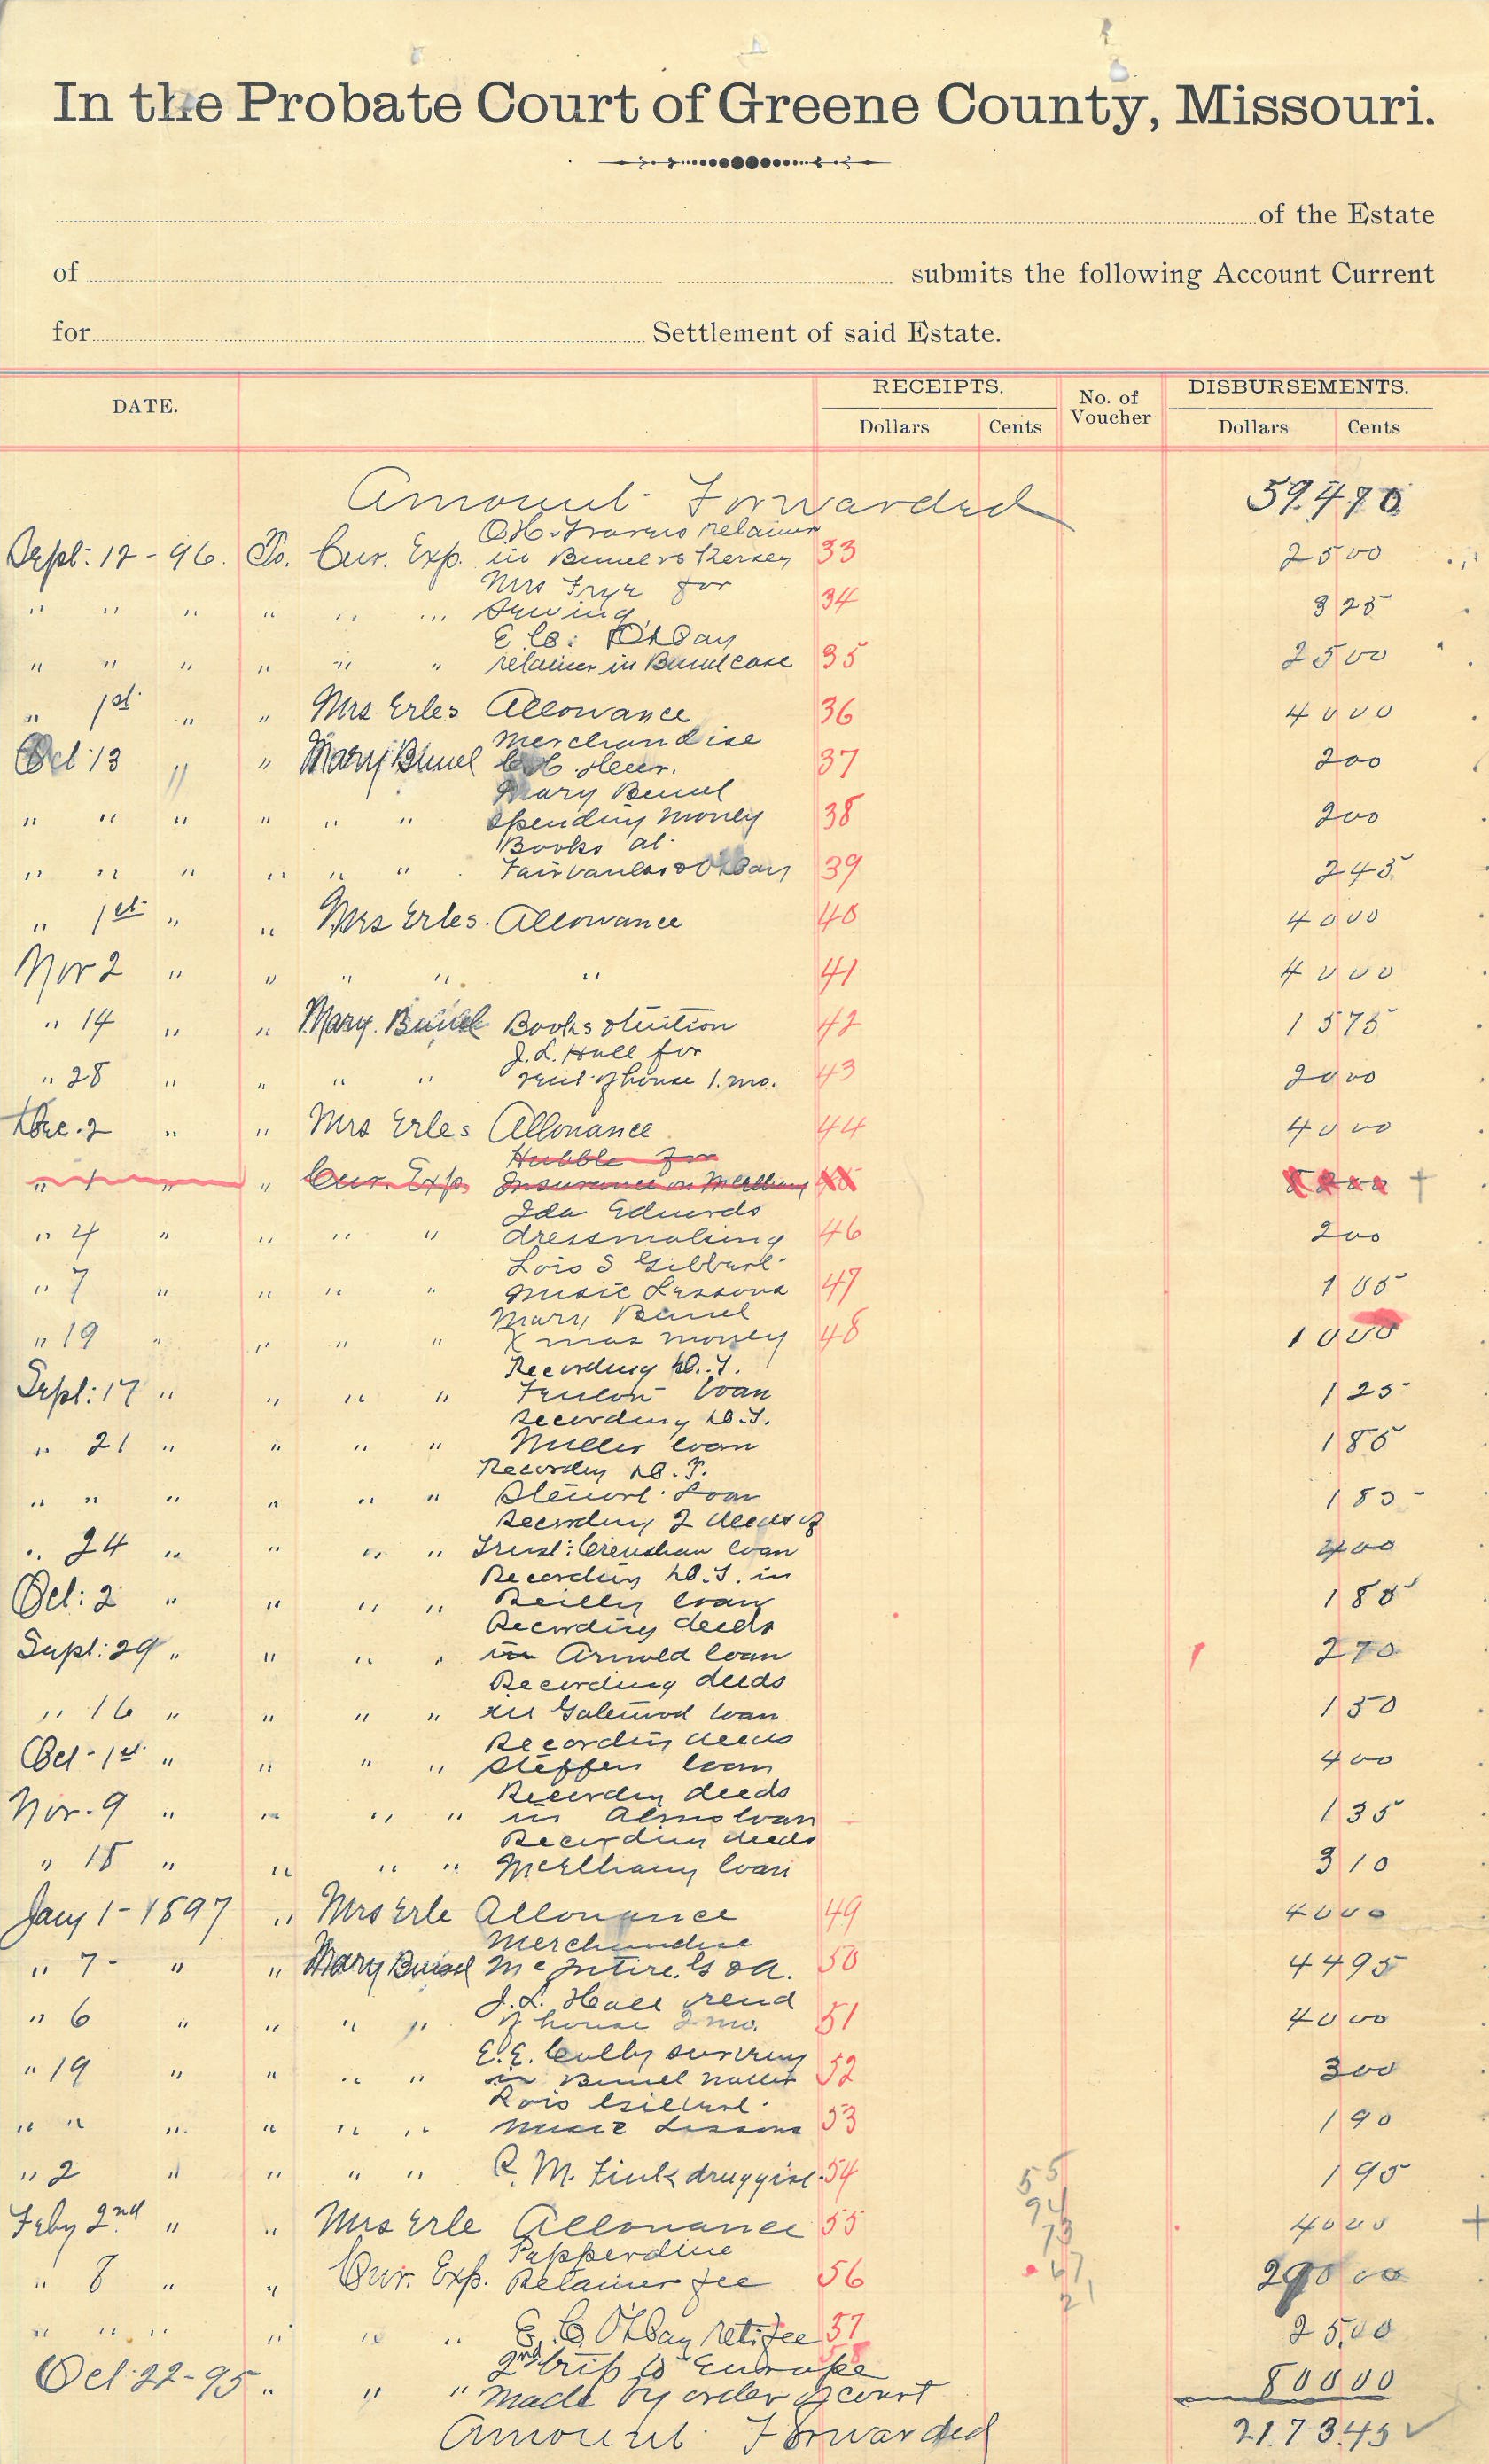 In the Probate Court of Greene County, Missouri.
of the Estate
of submits the following Account Current
for Settlement of said Estate.
DATE. RECEIPTS. No. of Voucher DISBURSEMENTS.
Dollars Cents Dollars Cents
Amount Forwarded 594 70
O.H. Travers retainer
Sept: 12 - 96. To. Cur. Exp. in Bunel vs Kersey 33 25 00
Mrs Frye for
" " " " " " Sewing 34 3 25
E. C. O'Day
" " " " " " retainer in Bunel case 35 25 00
" 1st " " Mrs Erles Allowance 36 40 00
Merchandise
Oct 13 " " Mary Bunel C.H. Heer. 37 2 00
Mary Bunel
" " " " " " Spending money 38 2 00
Books at
" " " " " " Fairbanks & O'Day 39 2 45
" 1st " " Mrs Erles. Allowance 40 40 00
Nov 2 " " " " " 41 40 00
" 14 " " Mary Bunel Books & tuition 42 15 75
J.L. Hall for
" 28 " " " " rent of house 1. mo. 43 20 00
Dec. 2 " " Mrs Erles Allowance 44 40 00
Hubble for
" " " " Cur. Exp. Insurance on McElhany
Ida Edwards
" 4 " " " " dressmaking 46 2 00
Lois S Gilbert
" 7 " " " " music Lessons 47 1 05
Mary Bunel
" 19 " " " " Xmas money 48 10 00
Recording D.T.
Sept: 17 " " " " Fenton Loan 1 25
Recording D.T.
" 21 " " " " Miller Loan 1 85
Recording D.T.
" " " " " " Stewart Loan 1 85
Recording 2 deeds of
" 24 " " " " Trust: Crenshaw loan 4 00
Recording D.T. in
Oct: 2 " " " " Reilly loan 1 85
Recording deeds
Sept: 29 " " " " in Arnold loan 2 70
Recording deeds
" 16 " " " " in loan 1 50
Recording deeds
Oct - 1st " " " " Steffen loan 4 00
Recording deeds
Nov. 9 " " " " in loan 1 35
Recording deeds
" 18 " " " " McElhany loan 3 10
Jany 1 - 1897 " Mrs Erle Allowance 49 40 00
Merchandise
" 7 - " " Mary Bunel McIntire. G & A. 50 44 95
J.L. Hall rend
" 6 " " " " of house 2 mo. 51 40 00
E.E. Colby survey
" 19 " " " " in Bunel matter 52 3 00
Lois Gilbert
" " " " " " music Lessons 53 1 90
" 2 " " " " R. M. Fink druggist. 54 1 95
55
94
73
67
21
Feby 2nd " " Mrs Erle Allowance 55 40 00
Pepperdine
" 8 " " Cur. Exp. Retainer fee 56 290 00
" " " " " " E. C. O'Day ret. fee 57 25.00
58
2nd trip to Europe
Oct 22 - 95 " " " made by order of court 800 00
Amount Forwarded 2173.45 ✓